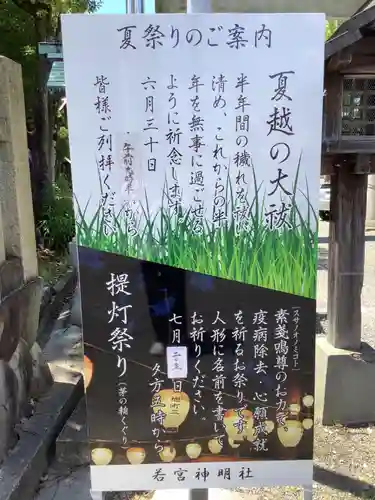 夏祭りのご案内
夏越の大祓
半年間の穢れを祓い
清め、これからの半
年を無事に過ごせる
ように祈念します。
六月三十日
・午前
から
皆様ご列拝ください。
提燈祭り
(茅の輪くぐり)
スサノオノミコト
素戔嗚尊のお力で
疫病除去・心願成就
を祈るお祭りです。
人形に名前を書いて
お祈りください。
七月
日
夕方五時から
若宮神明社